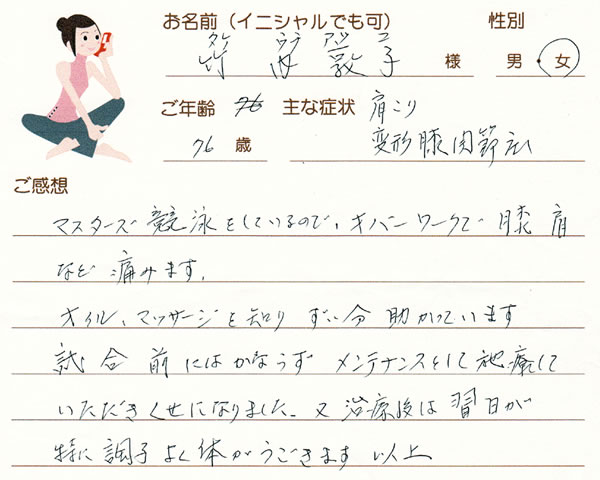 お名前（イニシャルでも可） 性別
タケ ウチ アツ コ
竹 内 敦 子 様 男・女
ご年齢 76 主な症状 肩こり
76 歳 変形膝関節症
ご感想
マスターズ競泳をしているので、オーバーワークで膝 肩
など痛みます。
オイル、マッサージを知り ずい分助かっています
試合前にはかならず メンテナンスをして施療して
いただきくせになりました。又治療後は翌日が
特に調子よく体がうごきます 以上